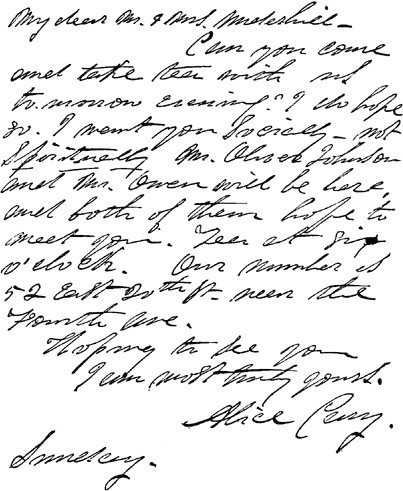 My dear Mr. & Mrs. Underhill –
Can you come
and take tea with us
to-morrow evening? I do hope
so. I want you Socially – not
Spiritually Mr. Oliver Johnson
and Mr. Owen will be here,
and both of them hope to
meet you. Tea at six
o'clock. Our number is
52 East 20th St. near the
Fourth ave.
Hoping to see you
I am most truly yours.
Alice Cary.
Sunday.